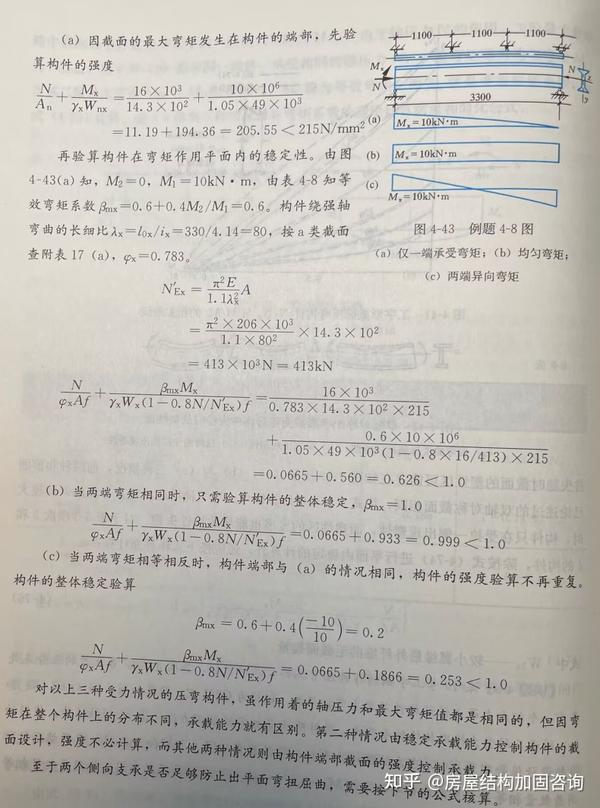 (a) 因截面的最大弯矩发生在构件的端部，先验
算构件的强度
N/A_n + M_x/(γ_xW_nx) = (16×10³)/(14.3×10²) + (10×10⁶)/(1.05×49×10³)
=11.19+194.36=205.55<215N/mm²
再验算构件在弯矩作用平面内的稳定性。由图
4-43(a)知，M₂=0，M₁=10kN·m，由表4-8知等
效弯矩系数β_mx=0.6+0.4M₂/M₁=0.6。构件绕强轴
弯曲的长细比λ_x=l_0x/i_x=330/4.14=80，按a类截面
查附表17 (a)，φ_x=0.783。
1100 1100 1100
M_x
N
N
3300
(a) M_x=10kN·m
(b) M_x=10kN·m
(c)
M_x=10kN·m
图4-43 例题4-8图
(a) 仅一端承受弯矩；(b) 均匀弯矩；
(c) 两端异向弯矩
N′_Ex = (π²E)/(1.1λ_x²) A
= (π²×206×10³)/(1.1×80²) ×14.3×10²
=413×10³N=413kN
N/(φ_xAf) + (β_mxM_x)/(γ_xW_x(1-0.8N/N′_Ex)f) = (16×10³)/(0.783×14.3×10²×215)
+ (0.6×10×10⁶)/(1.05×49×10³(1-0.8×16/413)×215)
=0.0665+0.560=0.626<1.0
(b) 当两端弯矩相同时，只需验算构件的整体稳定，β_mx=1.0
N/(φ_xAf) + (β_mxM_x)/(γ_xW_x(1-0.8N/N′_Ex)f) =0.0665+0.933=0.999<1.0
(c) 当两端弯矩相等相反时，构件端部与 (a) 的情况相同，构件的强度验算不再重复。
构件的整体稳定验算
β_mx=0.6+0.4(-10/10)=0.2
N/(φ_xAf) + (β_mxM_x)/(γ_xW_x(1-0.8N/N′_Ex)f) =0.0665+0.1866=0.253<1.0
对以上三种受力情况的压弯构件，虽作用着的轴压力和最大弯矩值都是相同的，但因弯
矩在整个构件上的分布不同，承载能力就有区别。第二种情况由稳定承载能力控制构件的截
面设计，强度不必计算，而其他两种情况则由构件端部截面的强度控制承载力。
至于两个侧向支承是否足够防止出平面弯扭屈曲，需要按下节的公式核算。
知乎 @房屋结构加固咨询